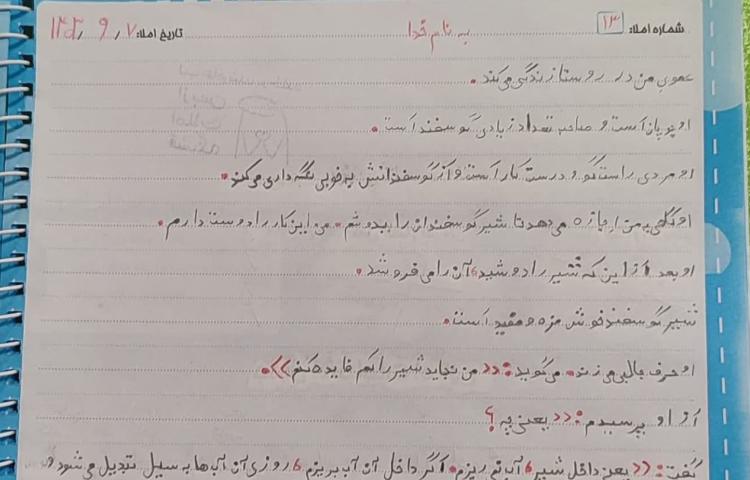 شماره املا: ۱۳ به نام خدا تاریخ املا: ۱۴۰۳/۹/۷
عموی من در روستا زندگی می‌کند.
او چوپان است و صاحب تعداد زیادی گوسفند است.
او مردی راست‌گو و درست کار است و از گوسفندانش به خوبی نگه‌داری می‌کند.
او گاهی به من اجازه می‌دهد تا شیر گوسفندان را بدوشم. من این کار را دوست دارم.
او بعد از این که شیر را دوشید، آن را می‌فروشد.
شیر گوسفند خوش مزه و مفید است.
او حرف جالبی می‌زند. می‌گوید: «من نباید شیر را کم فایده کنم».
از او پرسیدم: «یعنی چه؟
گفت: «یعنی داخل شیر، آب نمی‌ریزم. اگر داخل آن آب بریزم، روزی آن آب‌ها به سیل تبدیل می‌شود و